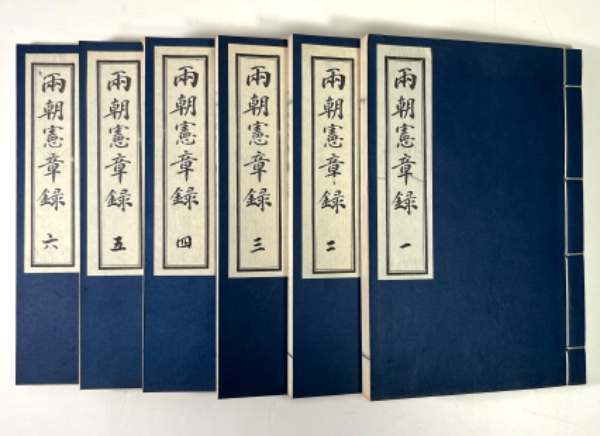 兩朝憲章録 一
兩朝憲章録 二
兩朝憲章録 三
兩朝憲章録 四
兩朝憲章録 五
兩朝憲章録 六